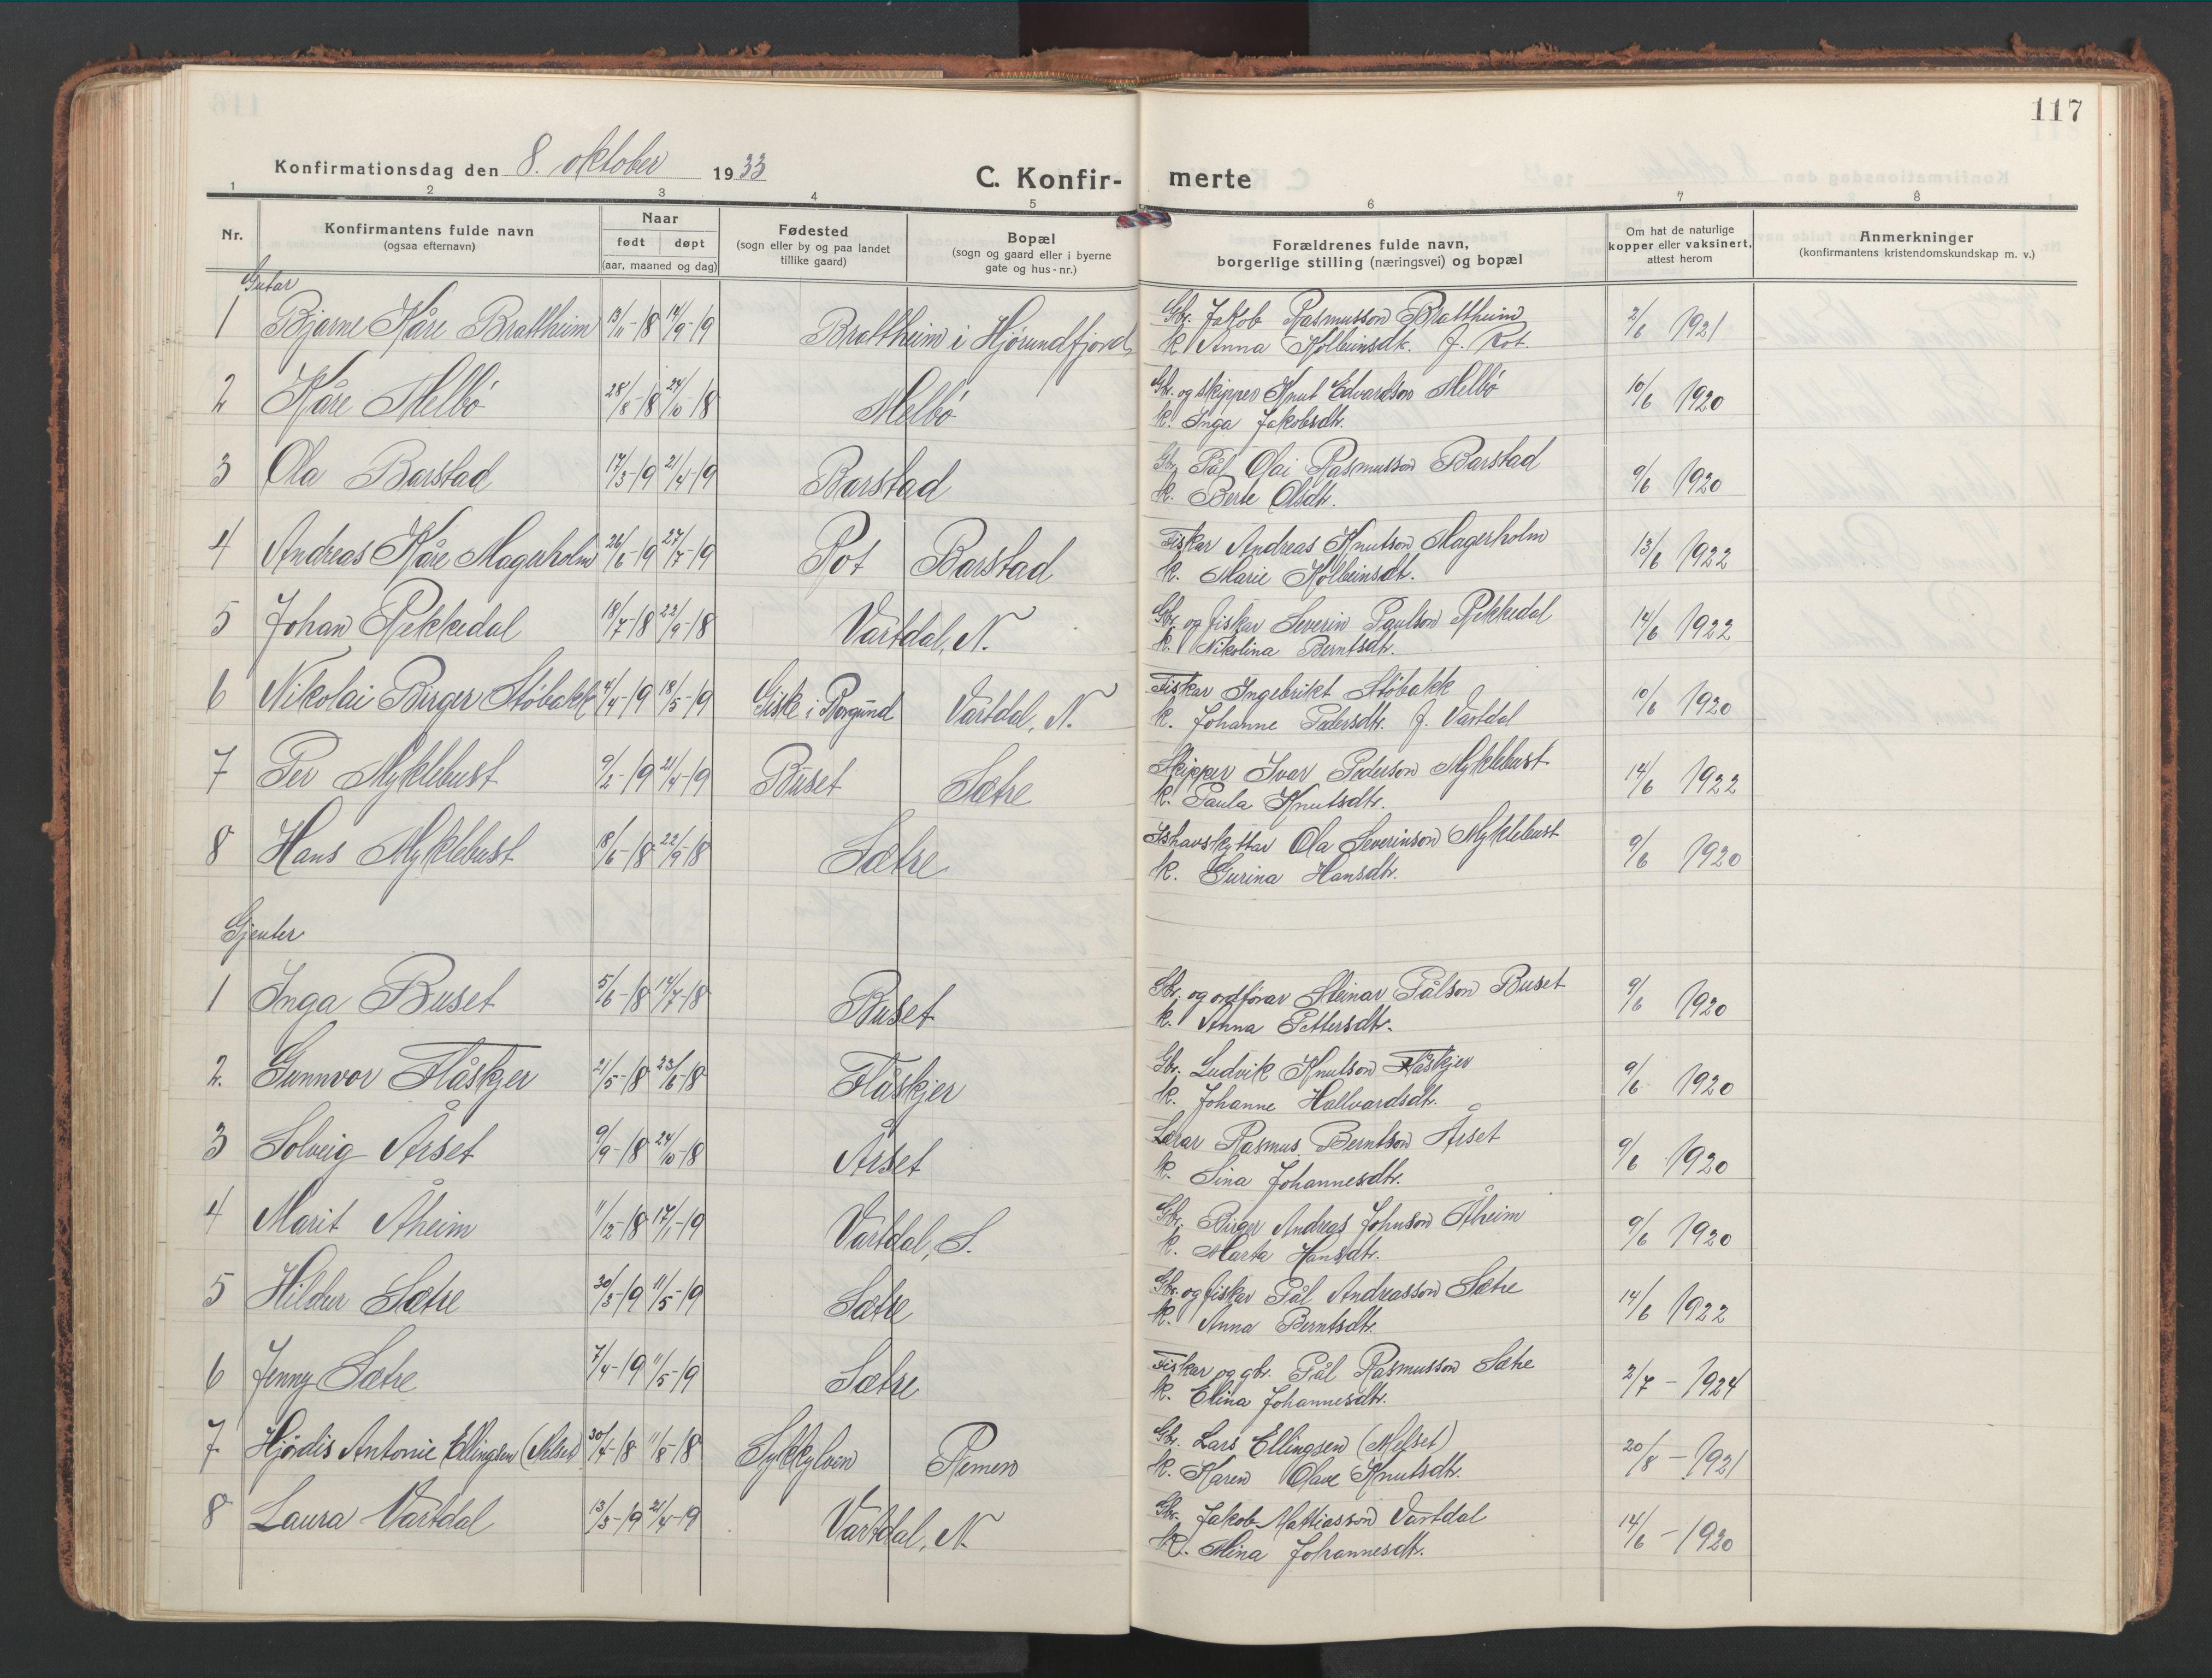 117
Konfirmationsdag den 8. oktober 1933
C. Konfir- merte
1 2 3 4 5 6 7 8
Nr.
Konfirmantens fulde navn
(ogsaa efternavn)
Naar
født døpt
(aar, maaned og dag)
Fødested
(sogn eller by og paa landet
tillike gaard)
Bopæl
(sogn og gaard eller i byerne
gate og hus-nr.)
Forældrenes fulde navn,
borgerlige stilling (næringsvei) og bopæl
Om hat de naturlige
kopper eller vaksinert,
attest herom
Anmerkninger
(konfirmantens kristendomskundskap m. v.)
Gutar
1 Bjarne Kåre Brattheim 13/11-18 14/9-19 Brattheim i Hjørundfjord Gbr. Jakob Rasmusson Brattheim 2/6 1921
k. Anna Kolbeinsdt. f. Rot.
2 Kåre Melbö 28/8-18 24/10-18 Melbö Gbr. og skipper Knut Edvardson Melbö 10/6 1920
k. Inga Jakobsdtr.
3 Ola Barstad 17/3-19 21/4-19 Barstad Gbr. Pål Olai Rasmusson Barstad 9/6 1920
k. Berte Olsdtr.
4 Andreas Kåre Magerholm 26/6-19 27/7-19 Rot Barstad Fiskar Andreas Knutson Magerholm 13/6 1922
k. Marie Kolbeinsdt.
5 Johan Rekkedal 18/7-18 22/9-18 Vartdal, N. Gbr. og fiskar Severin Paulson Rekkedal 14/6 1922
k. Nikolina Berntsdtr.
6 Nikolai Birger Støbakk 4/4-19 18/5-19 Giske i Borgund Vartdal, N. Fiskar Ingebrikt Støbakk 10/6 1920
k. Johanne Pedersdtr. f. Vartdal
7 Per Myklebust 9/2-19 21/4-19 Buset Sætre Skipper Ivar Pederson Myklebust 14/6 1922
k. Paula Knutsdtr.
8 Hans Myklebust 18/6-18 22/9-18 Sætre Ishavskyttar Ola Severinson Myklebust 9/6 1920
k. Gurina Hansdtr.
Gjenter
1 Inga Buset 5/6-18 14/7-18 Buset Gbr. og ordförar Steinar Pålson Buset 9/6 1920
k. Anna Pettersdtr.
2. Gunnvor Flåskjer 21/5-18 23/6-18 Flåskjer Gbr. Ludvik Knutson Flåskjer 9/6 1920
k. Johanne Hallvardsdt.
3 Solveig Årset 9/9-18 24/10-18 Årset Lærar Rasmus Berntson Årset 9/6 1920
k. Sina Johannesdtr.
4 Marit Åheim 11/12-18 17/1-19 Vartdal, S. Gbr. Birger Andreas Johnson Åheim 9/6 1920
k. Marta Hansdtr.
5 Hildur Sætre 30/3-19 11/5-19 Sætre Gbr. og fiskar Pål Andreasson Sætre 14/6 1922
k. Anna Berntsdtr.
6 Jenny Sætre 7/4-19 11/5-19 Sætre Fiskar og gbr. Pål Rasmusson Sætre 2/7 - 1924
k. Elina Johannesdtr.
7 Hjødis Antonie Ellingsen (Melset) 30/4-18 11/8-18 Sykkylven Remen Gbr. Lars Ellingsen (Melset) 20/8 - 1921
k. Karen Olave Knutsdtr.
8 Laura Vartdal 13/3-19 21/4-19 Vartdal, N. Gbr. Jakob Mattiasson Vartdal 14/6 - 1920
k. Mina Johannesdt.